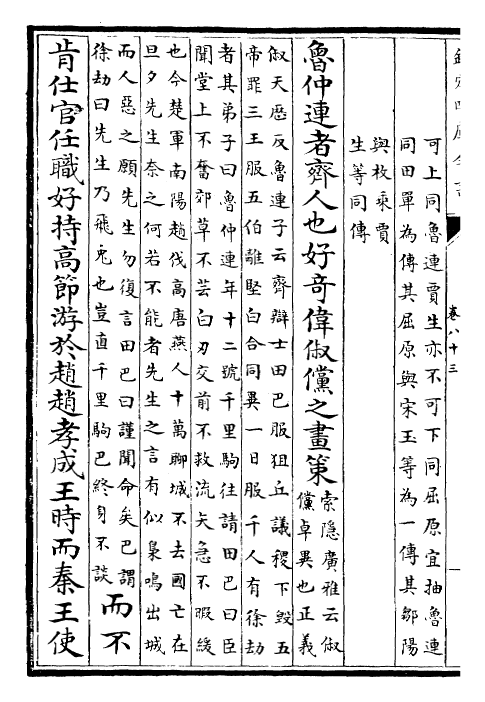 卷八十三
可上同魯連賈生亦不可下同屈原宜抽魯連
同田單為傳其屈原與宋玉等為一傳其鄒陽
與枚乘賈
生等同傳
魯仲連者齊人也好奇偉俶儻之畫策
索隱廣雅云俶
儻卓異也正義
俶天歴反魯連子云齊辯士田巴服狙丘議稷下毀五
帝罪三王服五伯離堅白合同異一日服千人有徐劫
者其弟子曰魯仲連年十二號千里駒往請田巴曰臣
聞堂上不奮郊草不芸白刃交前不救流矢急不暇緩
也今楚軍南陽趙伐高唐燕人十萬聊城不去國亡在
旦夕先生奈之何若不能者先生之言有似梟鳴出城
而人惡之願先生勿復言田巴曰謹聞命矣巴謂
徐劫曰先生乃飛兎也豈直千里駒巴終身不談
而不
肯仕官任職好持高節游於趙趙孝成王時而秦王使